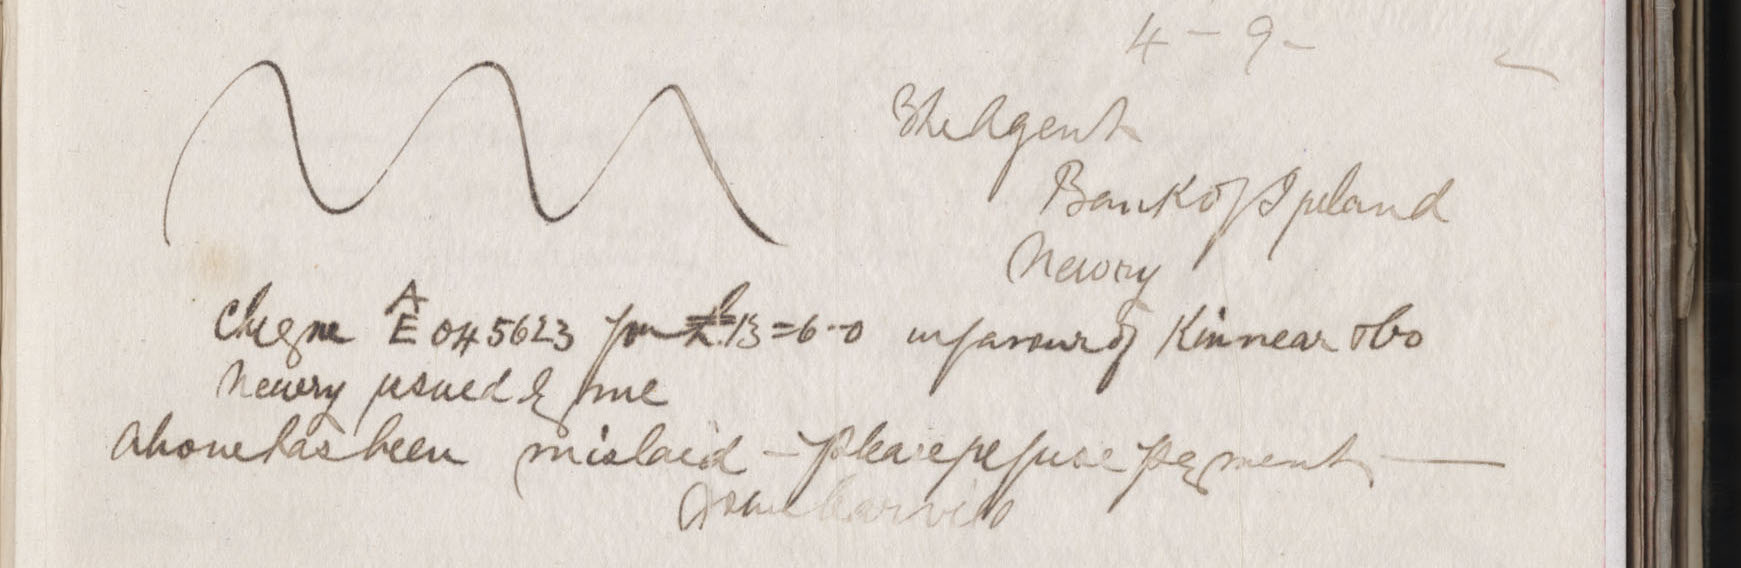 4 - 9 -
The Agent
Bank of Ireland
Newry
Cheque A/E 045623 for £13=6-0 in favour of Kinnear & Co
Newry issued by me
Above has been mislaid - please refuse payment